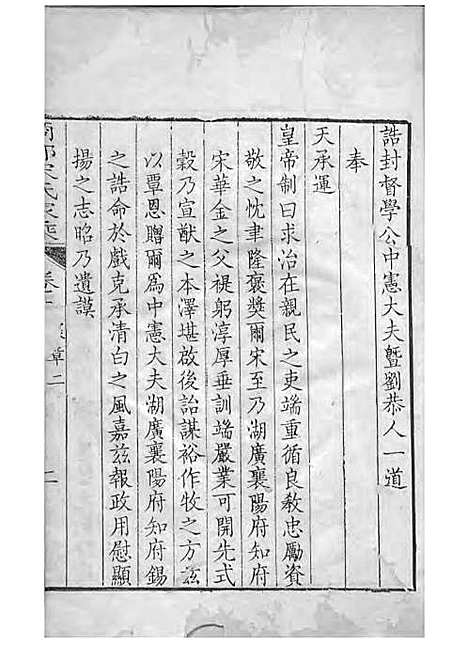 誥封督學公中憲大夫暨劉恭人一道
奉
天承運
皇帝制曰求治在親民之吏端重循良教忠勵資
敬之忱聿隆褒獎爾宋至乃湖廣襄陽府知府
宋華金之父禔躬淳厚垂訓端嚴業可開先式
穀乃宣猷之本澤堪啟後詒謀裕作牧之方茲
以覃恩贈爾為中憲大夫湖廣襄陽府知府錫
之誥命於戲克承清白之風嘉茲報政用慰顯
揚之志昭乃遺謨
宋氏家乘
卷
章二